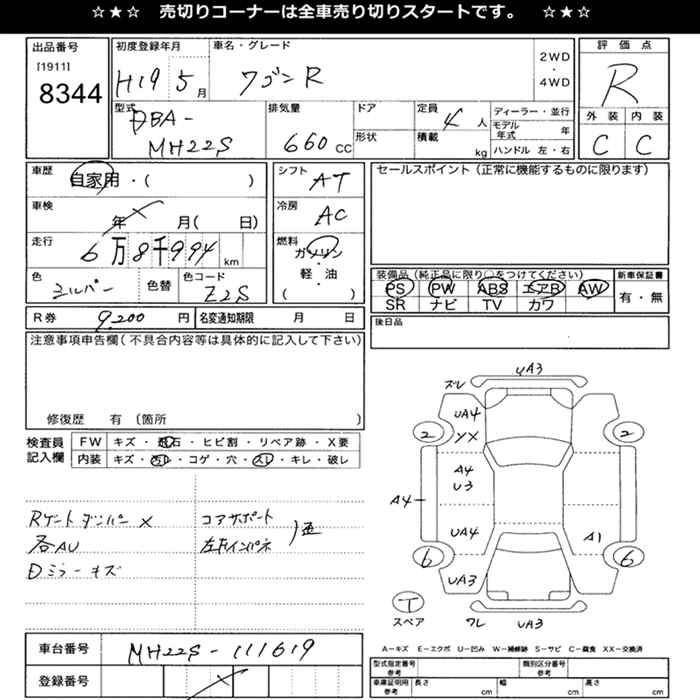 ☆★☆ 売切りコーナーは全車売り切りスタートです。 ☆★☆
出品番号
[1911]
8344
初度登録年月
H19 5 月
車名・グレード
ワゴンR
2WD
・
4WD
評価点
R
外装 内装
C C
型式
DBA-
MH22S
排気量
660 cc
ドア
形状
定員
4 人
積載
kg
ディーラー・並行
モデル年式 年
ハンドル 左・右
車歴
自家用・( )
車検
年 月( 日)
走行
6万8千994 km
色
シルバー
色替
色コード
Z2S
シフト
AT
冷房
AC
燃料
ガソリン
・
軽・油
( )
セールスポイント (正常に機能するものに限ります)
装備品 (純正品に限り○をつけてください)
PS PW ABS エアB AW
SR ナビ TV カワ
新車保証書
有・無
R券 9,200 円
名変通知期限 月 日
後日品
注意事項申告欄(不具合内容等は具体的に記入して下さい)
修復歴 有 (箇所 )
検査員
記入欄
FW キズ・飛石・ヒビ割・リペア跡・X要
内装 キズ・汚レ・コゲ・穴・スレ・キレ・破レ
Rゲートダンパー ×
各AU
Dミラーキズ
コアサポート
左Fインパネ
車台番号 MH22S-111619
登録番号
UA3
ズレ
UA4
XX
2 2
A4
U3
A4
UA4
A1
6 6
UA3
T
スペア
ワレ UA3
A-キズ E-エクボ U-凹み W-補修跡 S-サビ C-腐食 XX-交換済
型式指定番号
参考
類別区分番号
参考
車庫証明用
参考
長さ cm
幅 cm
高さ cm